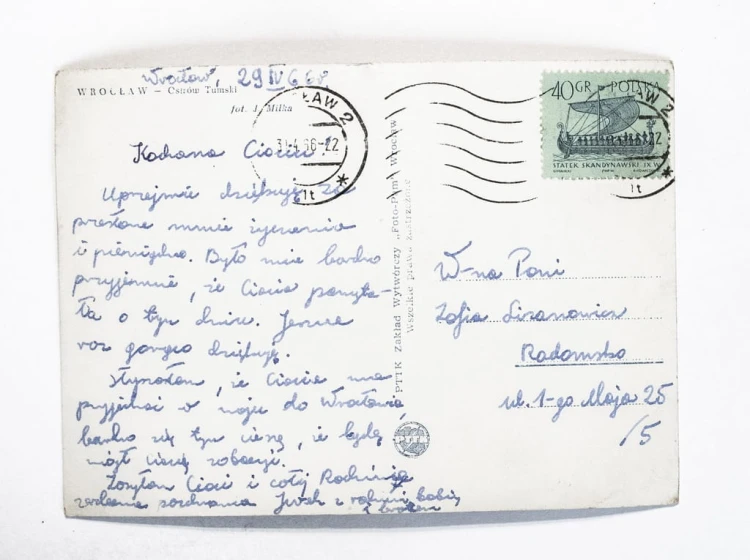 Wrocław, 29 IV 66r.
WROCŁAW — Ostrów Tumski
fot. J. Milka
Kochana Ciociu!
Uprzejmie dziękuję za
przesłane mnie życzenia
i pieniądze. Było mnie bardzo
przyjemnie, że Ciocia pamięta-
ła o tym dniu. Jeszcze
raz gorąco dziękuję.
Słyszałem, że Ciocia ma
przyjechać w maju do Wrocławia,
bardzo się tym cieszę, że będę
mógł Ciocię zobaczyć.
Zasyłam Cioci i całej Rodzinie
serdeczne pozdrowienia Jurek z babcią
i bratem
PTTK Zakład Wytwórczy „Foto-Pam" Wrocław
Wszelkie prawa zastrzeżone
PTTK
CŁAW 2
-4.66-22
40GR POLSKA
STATEK SKANDYNAWSKI IX W.
W-na Pani
Zofia
Radomsko
ul. 1-go Maja 25
/5